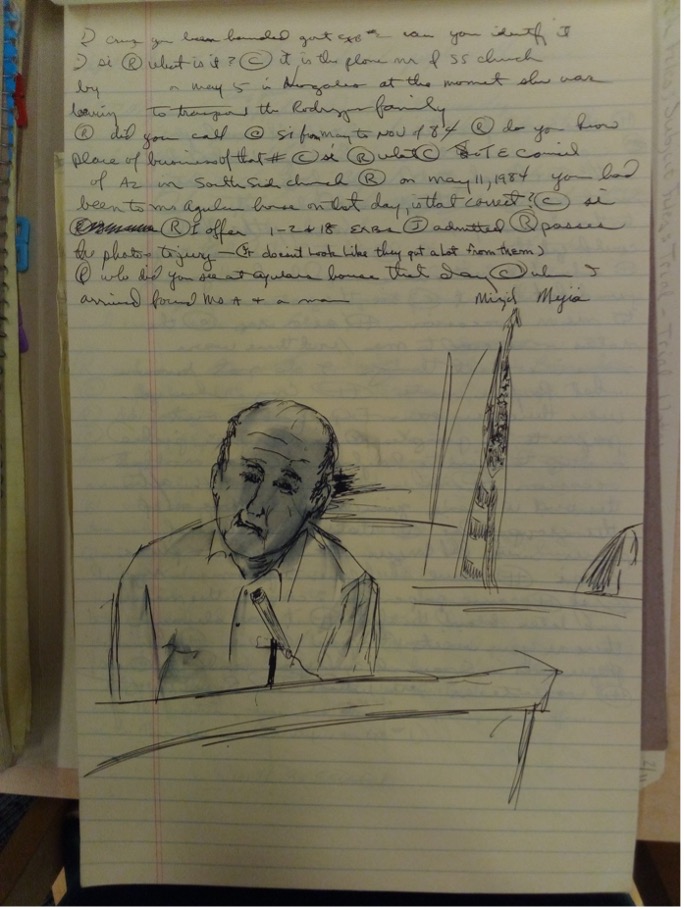 you been handed govt can you identify it
si Ⓡ what is it? Ⓒ it is the phone nr of SS church
by on may 5 in Nogales at the moment she was
leaving to transport the Rodrgz family
Ⓡ did you call Ⓒ si from may to Nov of 84 Ⓡ do you know
place of business of that # Ⓒ si Ⓡ what Ⓒ
of AZ in South Side church Ⓡ on may 11, 1984 you had
been to ms Aguilar house on that day, is that correct? Ⓒ si
Ⓡ I offer 1-2 & 18 Ⓙ admitted Ⓡ passes
the photos to jury — doesnt look like they got a lot from them)
who did you see at aguilars house that day Ⓒ when I
arrived found Ms A + a man Mejia